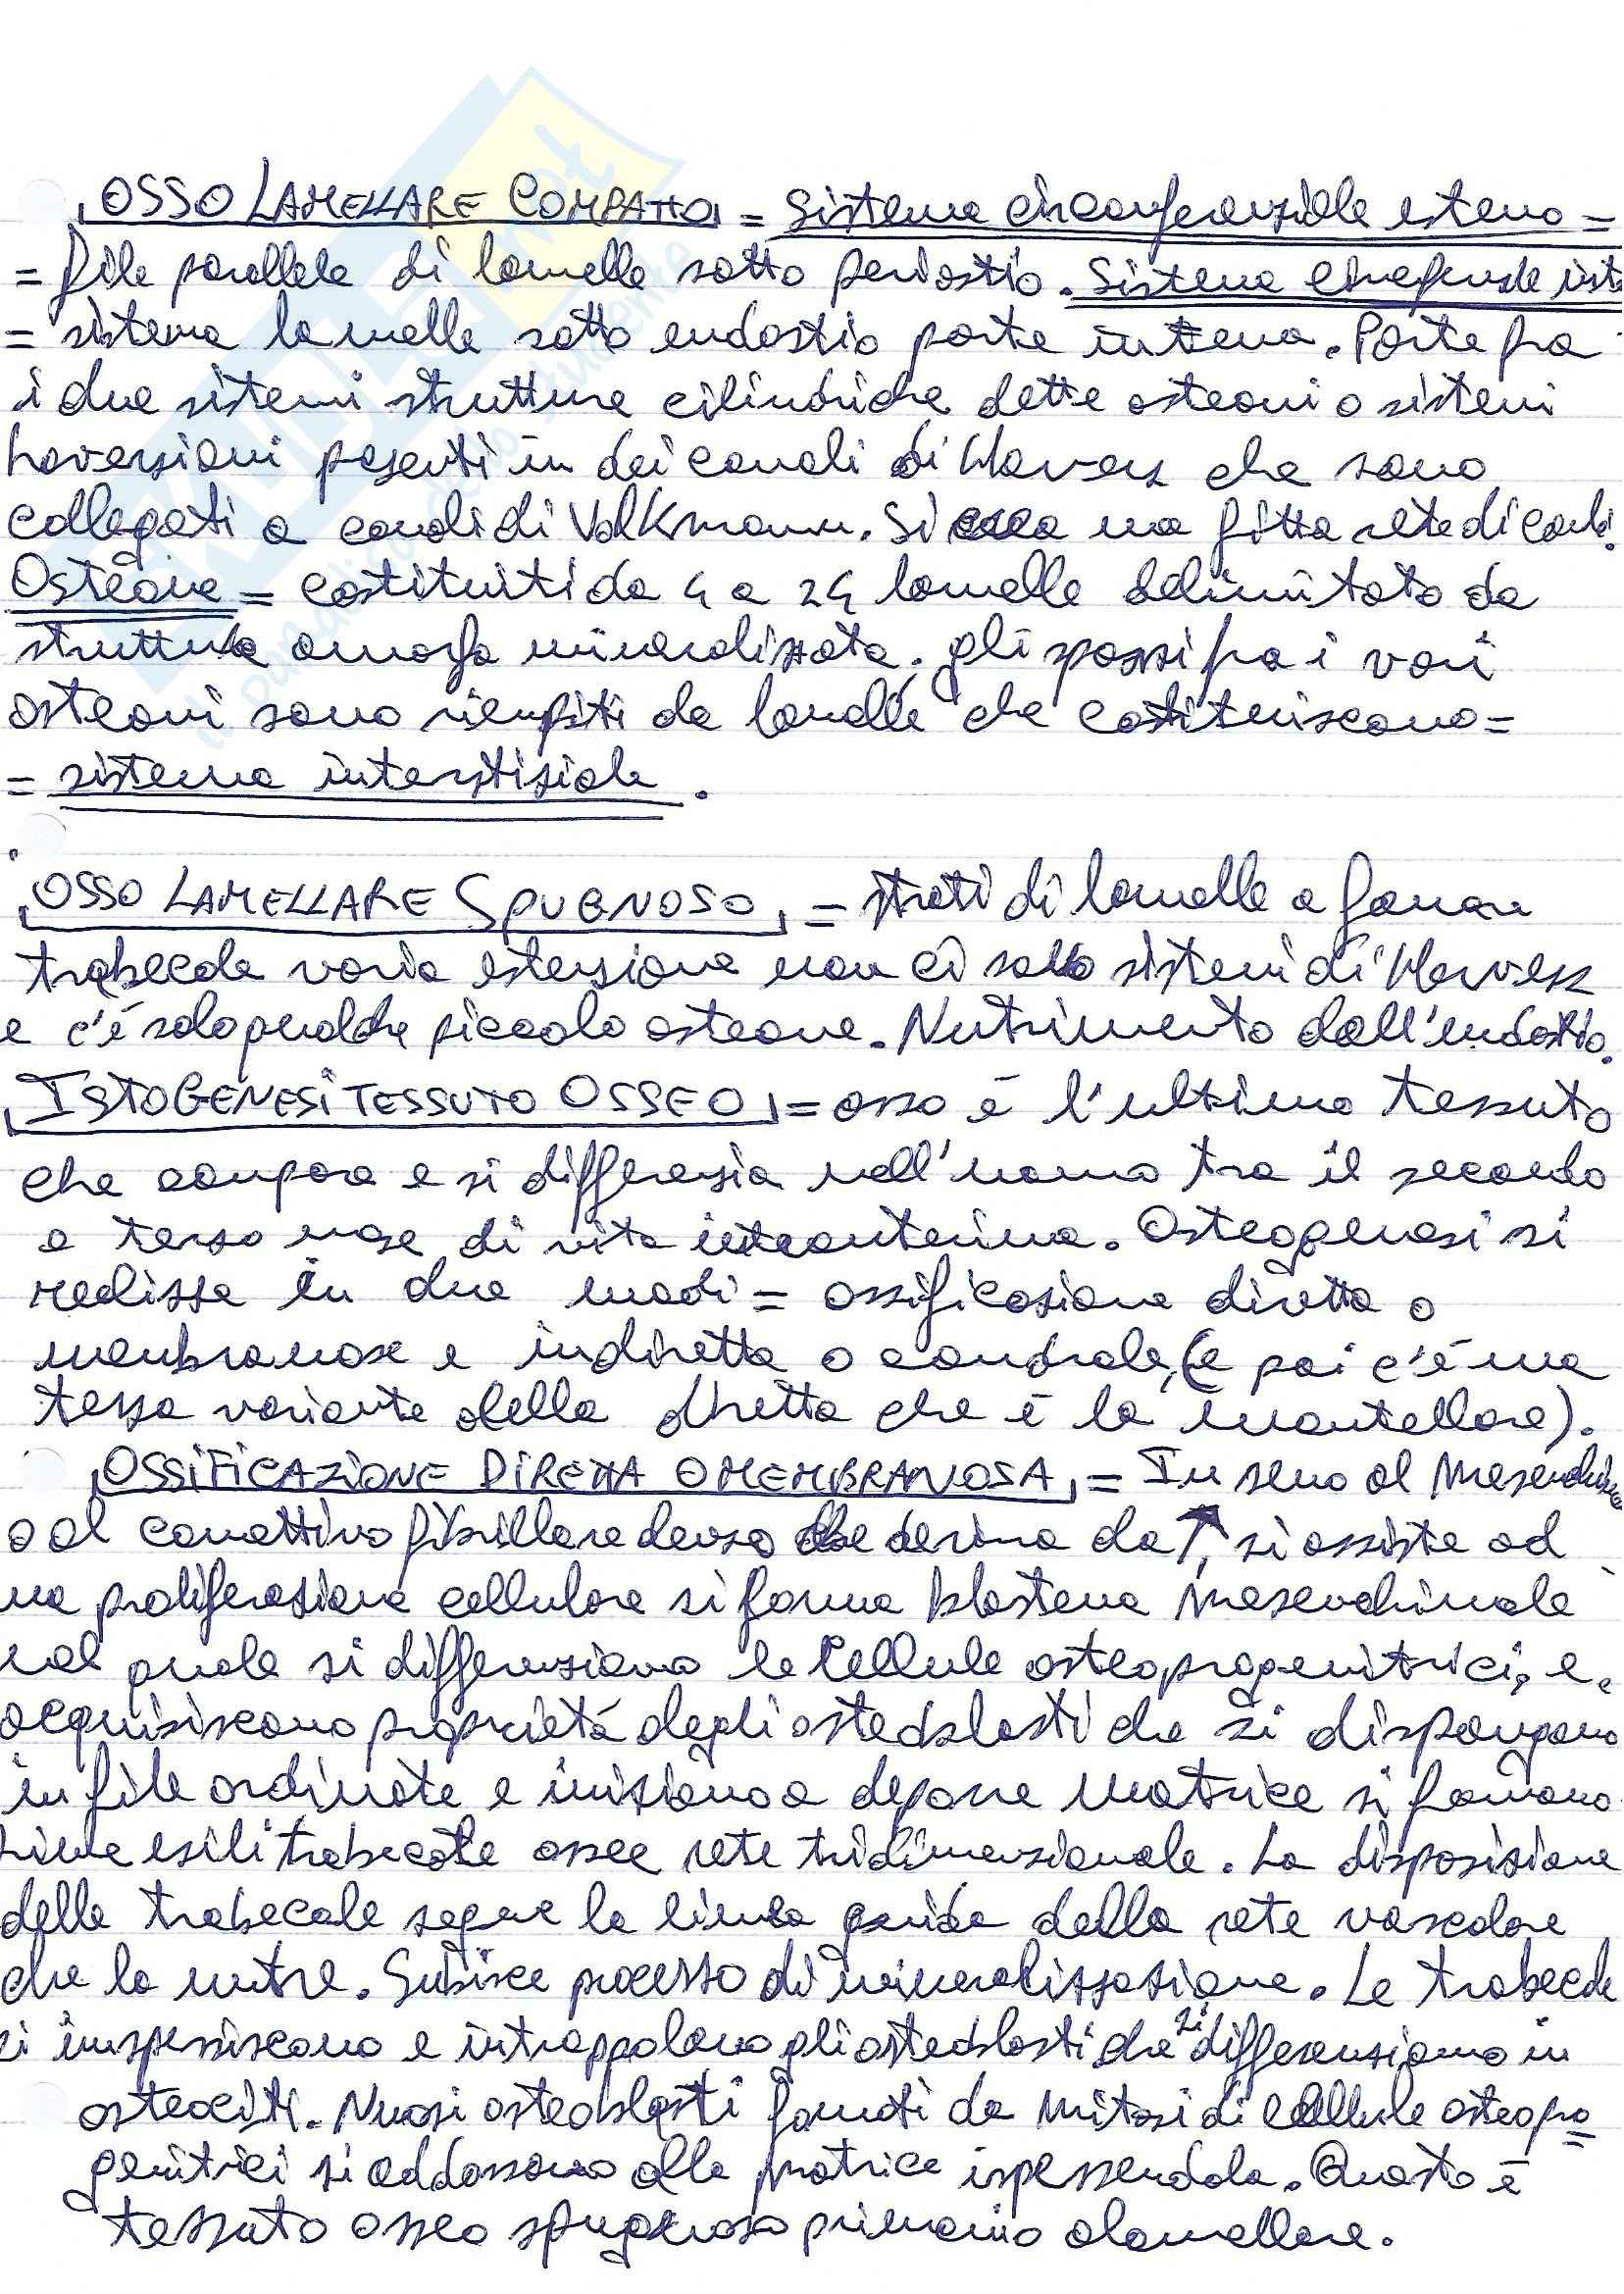 OSSO LAMELLARE COMPATTO = Sistema circonferenziale esterno =
= file parallele di lamelle sotto periostio. Sistema
= sistema lamelle sotto endostio parte interna. Parte fra
i due sistemi strutture cilindriche dette osteoni o sistemi
haversiani presenti in dei canali di Havers che sono
collegati a canali di Volkmann. Si crea una fitta rete di canali.
Osteone = costituiti da 4 a 24 lamelle delimitato da
struttura amorfa mineralizzata. gli spazzi fra i vari
osteoni sono riempiti da lamelle che costituiscono =
= sistema interstiziale.
OSSO LAMELLARE SPUGNOSO = strati di lamelle a formare
trabecole varia estensione non ci sono sistemi di Havers
e c'è solo qualche piccolo osteone. Nutrimento dall'endostio.
ISTOGENESI TESSUTO OSSEO = osso è l'ultimo tessuto
che compare e si differenzia nell'uomo tra il secondo
e terzo mese di vita intrauterina. Osteogenesi si
realizza in due modi = ossificazione diretta o
membranosa e indiretta o condrale, (e poi c'è una
terza variante della diretta che è la mantellare).
OSSIFICAZIONE DIRETTA O MEMBRANOSA = In seno al mesenchima
o al connettivo fibrillare denso che deriva da ↑, si assiste ad
una proliferazione cellulare si forma blastema mesenchimale
nel quale si differenziano le cellule osteoprogenitrici, e
acquisiscono proprietà degli osteoblasti che si dispongono
in file ordinate e iniziano a deporre matrice si formano
prime esili trabecole ossee rete tridimensionale. La disposizione
delle trabecole segue la linea guida della rete vascolare
che la nutre. Subisce processo di mineralizzazione. Le trabecole
si inspessiscono e intrappolano gli osteoblasti che si differenziano in
osteociti. Nuovi osteoblasti formati da mitosi di cellule osteopro=
genitrici si addossano alla matrice ispessendola. Questo è
tessuto osseo spugnoso primario alamellare.